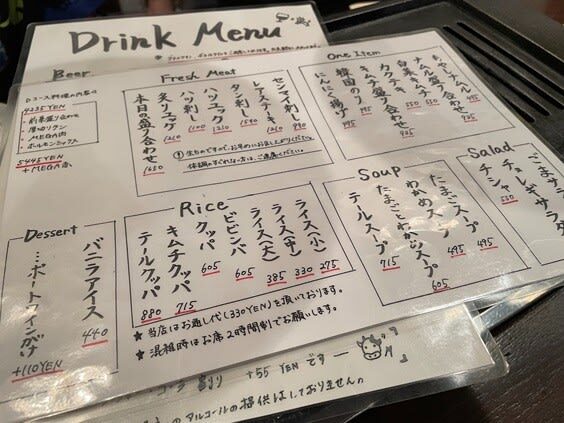 Drink Menu
Beer
Fresh Meat
センマイ刺し 990
レアステーキ 1210
タン刺し 1540
ハツユッケ 1210
ハツ刺し 1100
炙りユッケ 1210
本日の盛り合わせ 1650
生ものですので、お早めにお召し上がりください。
体調のすぐれない方は、ご遠慮ください。
One Item
ナムル盛り合わせ 935
白菜キムチ 550
カクテキ 550
キムチ盛り合わせ 935
韓国のり
にんにく揚げ 495
コース料理の内容は
4235YEN
・前菜盛り合わせ
・厚切りタン
・MEGA肉
・ホルモンミックス
5445YEN
+MEGA
Dessert
バニラアイス 440
…ポートワインがけ +110YEN
Rice
ライス(小) 275
ライス(中) 330
ライス(大) 385
ビビンバ 605
クッパ 605
キムチクッパ 715
テールクッパ 880
Soup
たまごスープ 495
わかめスープ 495
たまごとわかめスープ 605
テールスープ 715
Salad
チョレギサラダ
チシャ 330
★ 当店はお通し代(330YEN)を頂いております。
★ 混雑時はお席2時間制でお願いします。
+55 YEN です
アルコールの提供はしておりません。